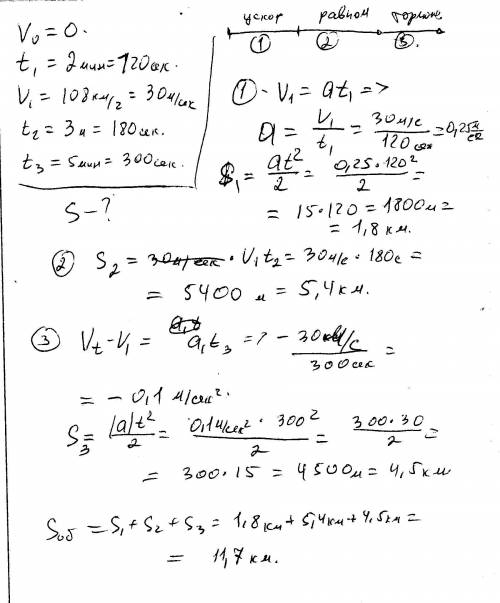 ускор равном тормож
① ② ③.
V₀ = 0.
t₁ = 2мин = 120сек.
V₁ = 108км/г = 30м/сек
t₂ = 3м = 180сек.
t₃ = 5мин = 300сек.
S - ?
① - V₁ = at₁ =>
a = V₁/t₁ = 30м/с/120сек = 0,25м/с2
S₁ = at²/2 = 0,25·120²/2 =
= 15·120 = 1800м =
= 1,8 км.
② S₂ = 30м/сек · V₁t₂ = 30м/с · 180с =
= 5400 м = 5,4км.
③ Vt - V₁ = a₁t₃ =? - 30м/с/300сек =
= - 0,1 м/сек².
S₃ = |a|t²/2 = 0,1м/сек² · 300²/2 = 300·30/2 =
= 300·15 = 4500м = 4,5км
Sоб = S₁ + S₂ + S₃ = 1,8км + 5,4км + 4,5км =
= 11,7 км.